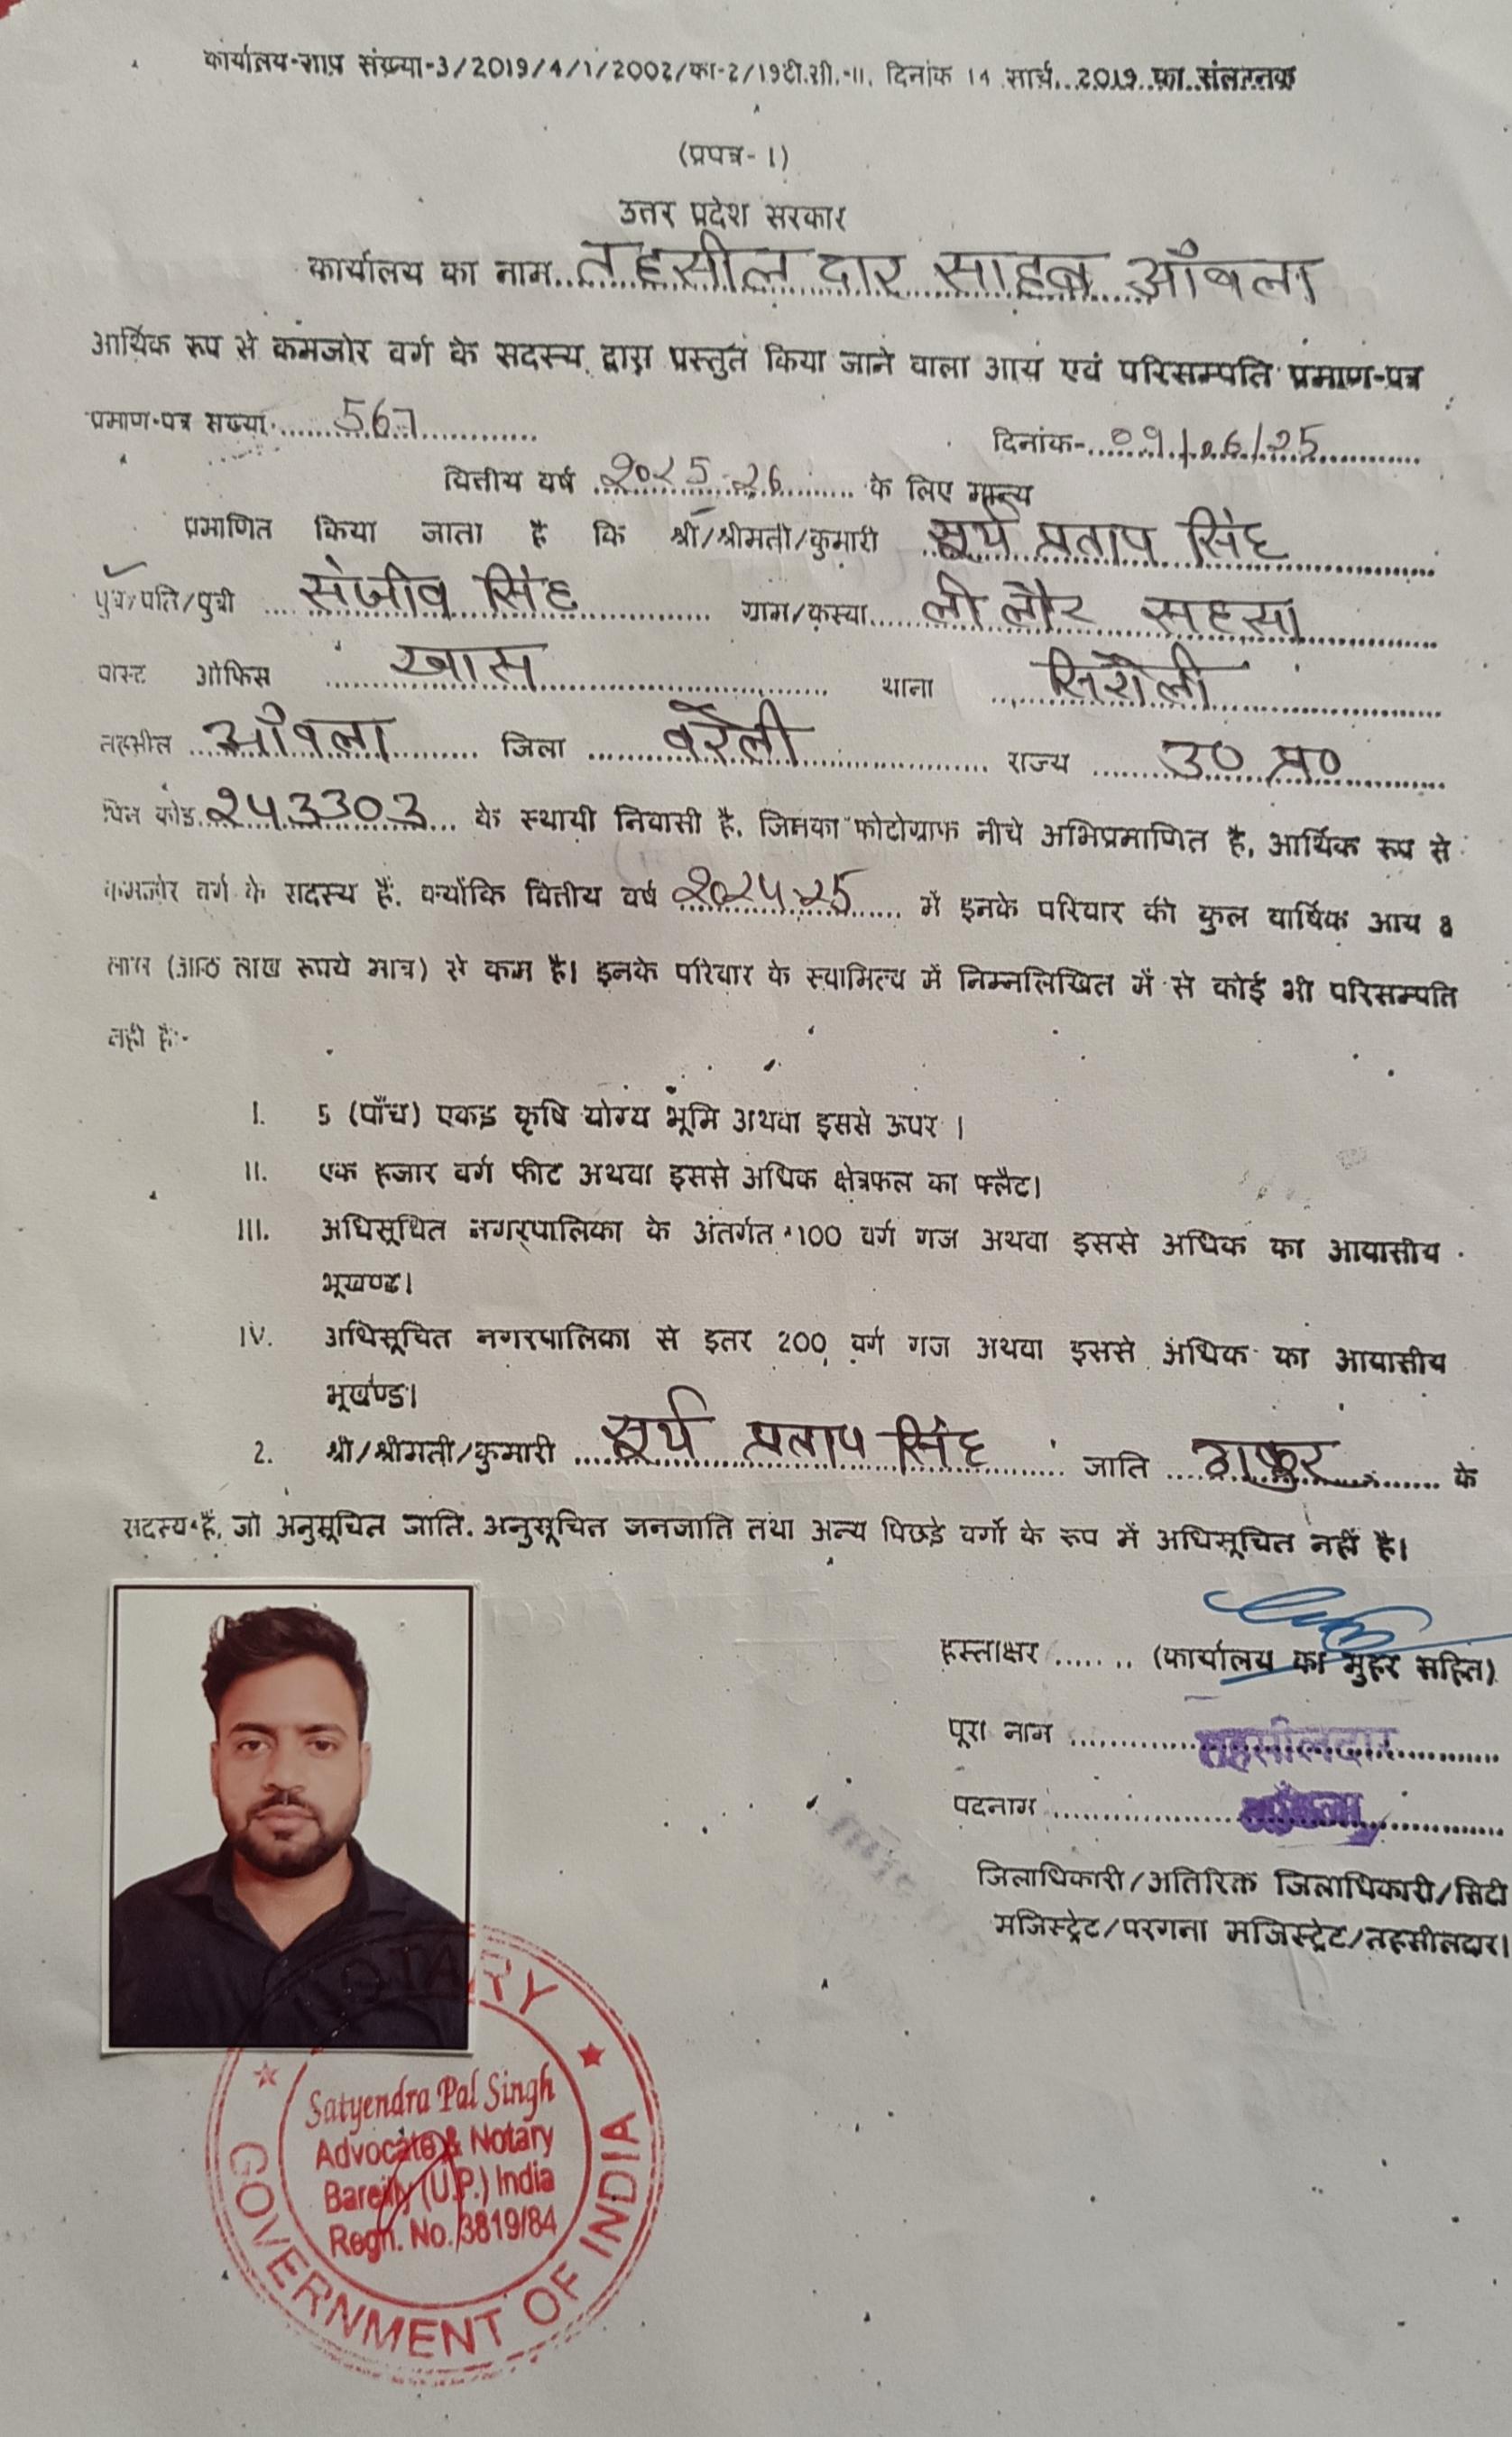 कार्यालय-ज्ञाप संख्या-3/2019/4/1/2002/का-2/19टी.सी.-II, दिनांक 14 मार्च, 2019 का संलग्नक
(प्रपत्र-I)
उत्तर प्रदेश सरकार
कार्यालय का नाम तहसीलदार साहब आँवला
आर्थिक रूप से कमजोर वर्ग के सदस्य द्वारा प्रस्तुत किया जाने वाला आय एवं परिसम्पति प्रमाण-पत्र
प्रमाण-पत्र संख्या 567 दिनांक- 09/06/25
वित्तीय वर्ष 2025-26 के लिए मान्य
प्रमाणित किया जाता है कि श्री/श्रीमती/कुमारी सूर्य प्रताप सिंह
पुत्र/पति/पुत्री संजीव सिंह ग्राम/कस्बा लीलौर सहसा
पोस्ट ऑफिस खास थाना सिरौली
तहसील आँवला जिला बरेली राज्य उ० प्र०
पिन कोड 243303 के स्थायी निवासी है, जिनका फोटोग्राफ नीचे अभिप्रमाणित है, आर्थिक रूप से
कमजोर वर्ग के सदस्य हैं, क्योंकि वित्तीय वर्ष 2024-25 में इनके परिवार की कुल वार्षिक आय 8
लाख (आठ लाख रूपये मात्र) से कम है। इनके परिवार के स्वामित्व में निम्नलिखित में से कोई भी परिसम्पति
नही है:-
I. 5 (पाँच) एकड़ कृषि योग्य भूमि अथवा इससे ऊपर ।
II. एक हजार वर्ग फीट अथवा इससे अधिक क्षेत्रफल का फ्लैट।
III. अधिसूचित नगरपालिका के अंतर्गत 100 वर्ग गज अथवा इससे अधिक का आवासीय
भूखण्ड।
IV. अधिसूचित नगरपालिका से इतर 200 वर्ग गज अथवा इससे अधिक का आवासीय
भूखण्ड।
2. श्री/श्रीमती/कुमारी सूर्य प्रताप सिंह जाति ठाकुर के
सदस्य हैं, जो अनुसूचित जाति, अनुसूचित जनजाति तथा अन्य पिछड़े वर्गों के रूप में अधिसूचित नहीं है।
हस्ताक्षर ...... .. (कार्यालय का मुहर सहित)
पूरा नाम तहसीलदार
पदनाम आँवला
जिलाधिकारी/अतिरिक्त जिलाधिकारी/सिटी
मजिस्ट्रेट/परगना मजिस्ट्रेट/तहसीलदार।
NOTARY
Satyendra Pal Singh
Advocate & Notary
Bareilly (U.P.) India
Regn. No. 3819/84
GOVERNMENT OF INDIA